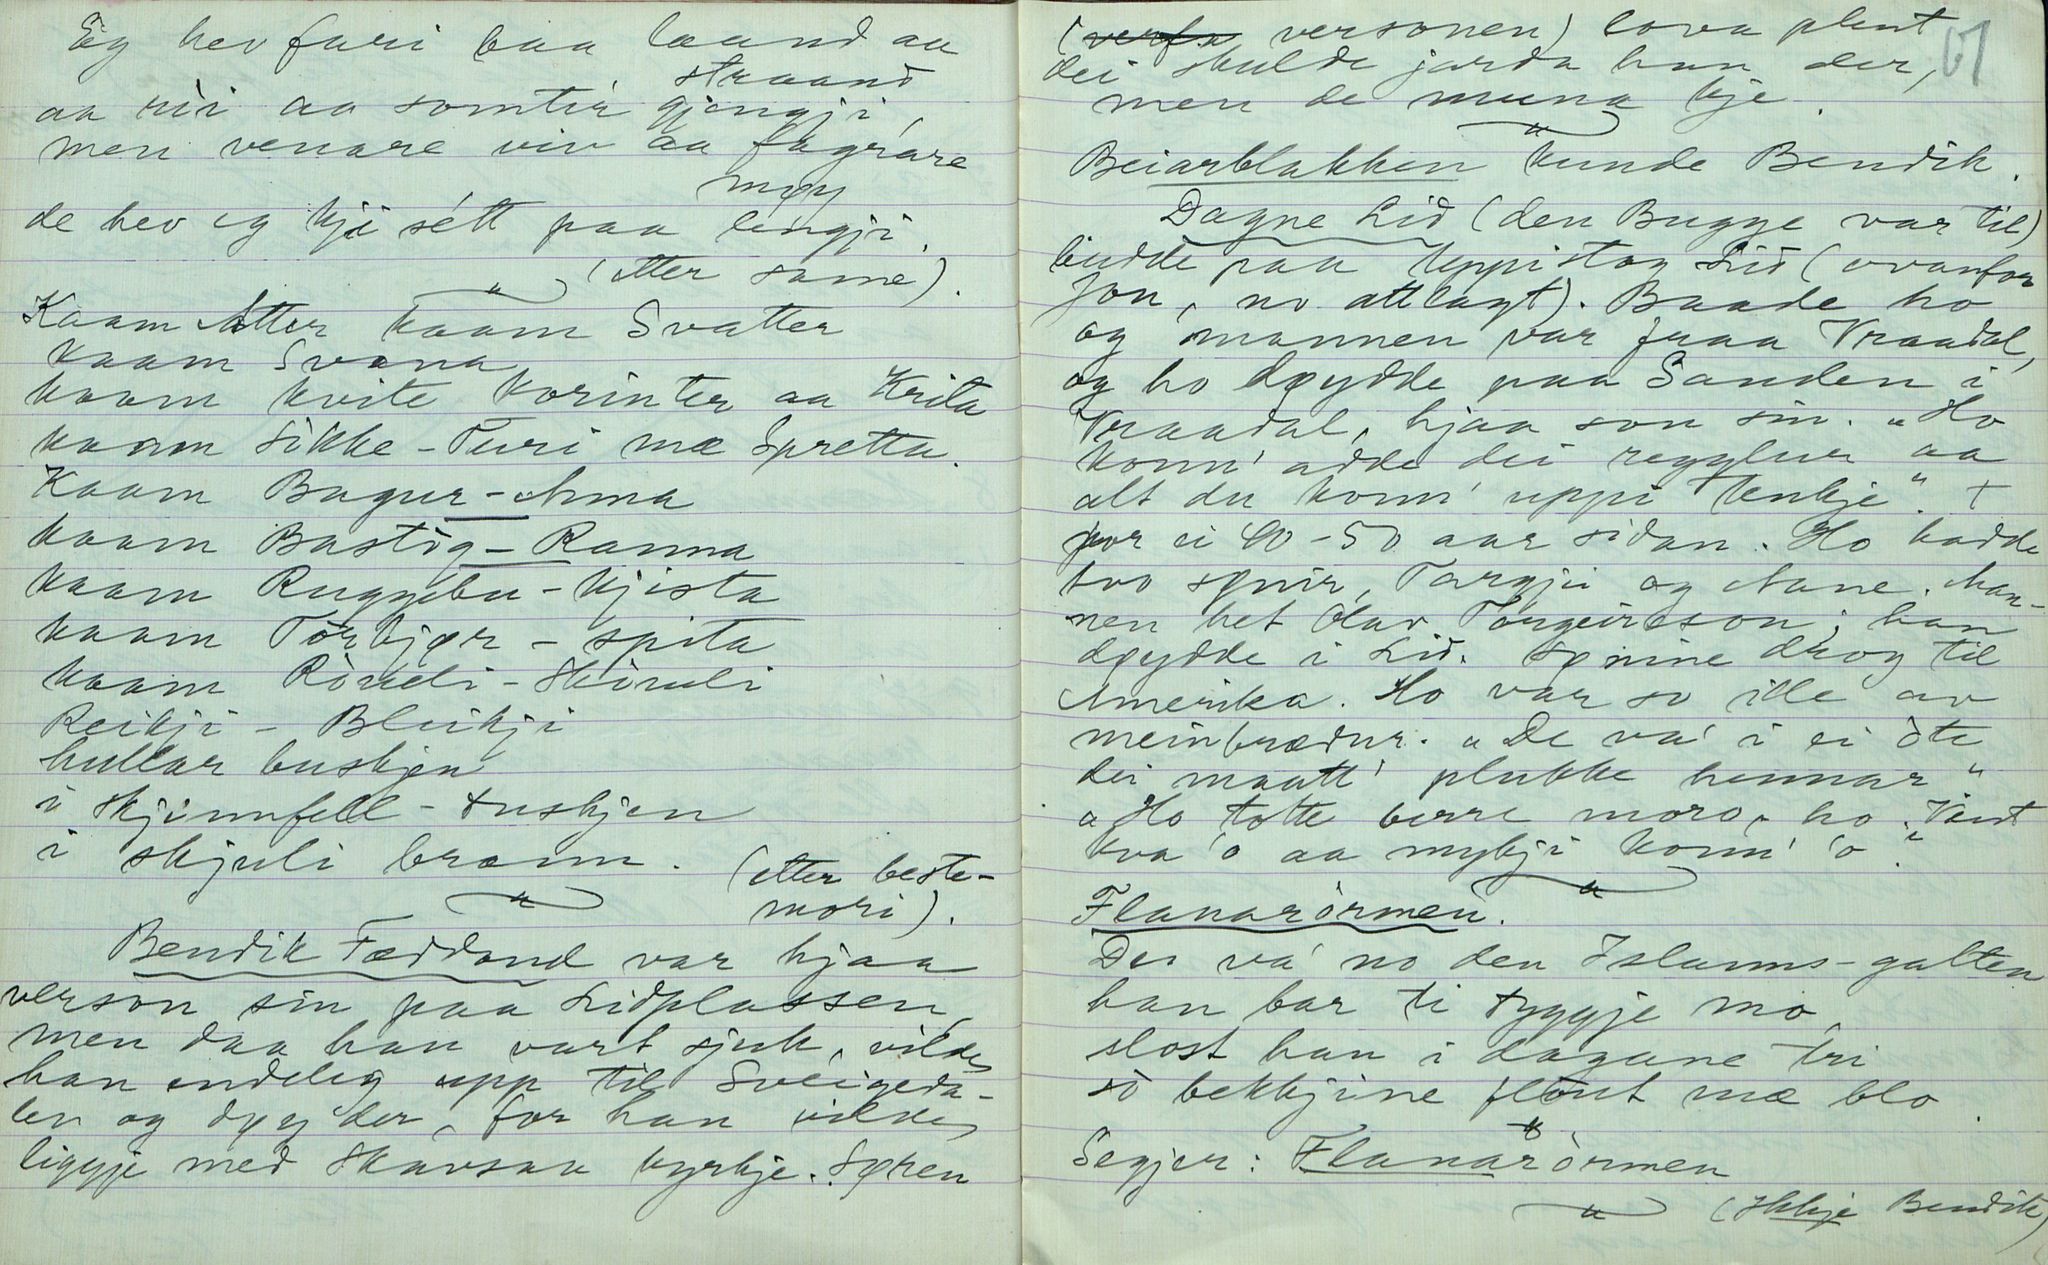 Eg hev fari baa laand aa
straand
aa rii aa somtir gjengji,
men venare viv aa fagrare
møy
de hev eg kji sétt paa lengji.
(etter same).
Kaam Atter kaam Svatter
kaam Svana
kaam kvite Korinter aa Krita
kaam Sikke-Turi mæ Spretta.
Kaam Bagur-Anna
kaam Bastig-Ranna
kaam Ruggebu-Kjista
kaam Torbjør-spita
kaam Rìsuli-Skinuli
Reikji-Bleikji
hullar buskjen
i skjinnfell-tuskjen
i skjuli brann. (etter beste-
mori).
Bendik Fæddand var hjaa
verson sin paa Lidplassen,
men daa han vart sjuk, vilde
han endeleg upp til Sveigeda-
len og døy der, for han vilde
liggje med Skavsaa kyrkje. Søren
(versonen) lova plent 67
dei skulde jarda han der,
men de muna kje.
Beiarblakken kunde Bendik.
Dagne Lid (den Bugge var til)
budde paa Uppistog Lid (ovanfor
Jon, no attlagt). Baade ho
og mannen var fraa Vraadal,
og ho døydde paa Sanden i
Vraadal, hjaa son sin. "Ho
konn' adde dei regglur aa
alt du konn' uppi tenkje". +
for ei 40-50 aar sidan. Ho hadde
tvo synir, Targjei og Aane. Man-
nen het Olav Torgeirsson; han
døydde i Lid. Sønine drog til
Amerika. Ho var so ille av
meinbrædur. "De va' i ei öte
dei maatt' plukke hennar"
"Ho totte berre moro, ho. Veit
kva 'o aa mykji konn' 'o."
Flanarörmen.
Der va' no den Islanns-galten
han bar ti tyggje mo,
slost han i dagane tri
so bekkjine flöut mæ blo.
Segjer: Flanarörmen
(Hikje Bendik)